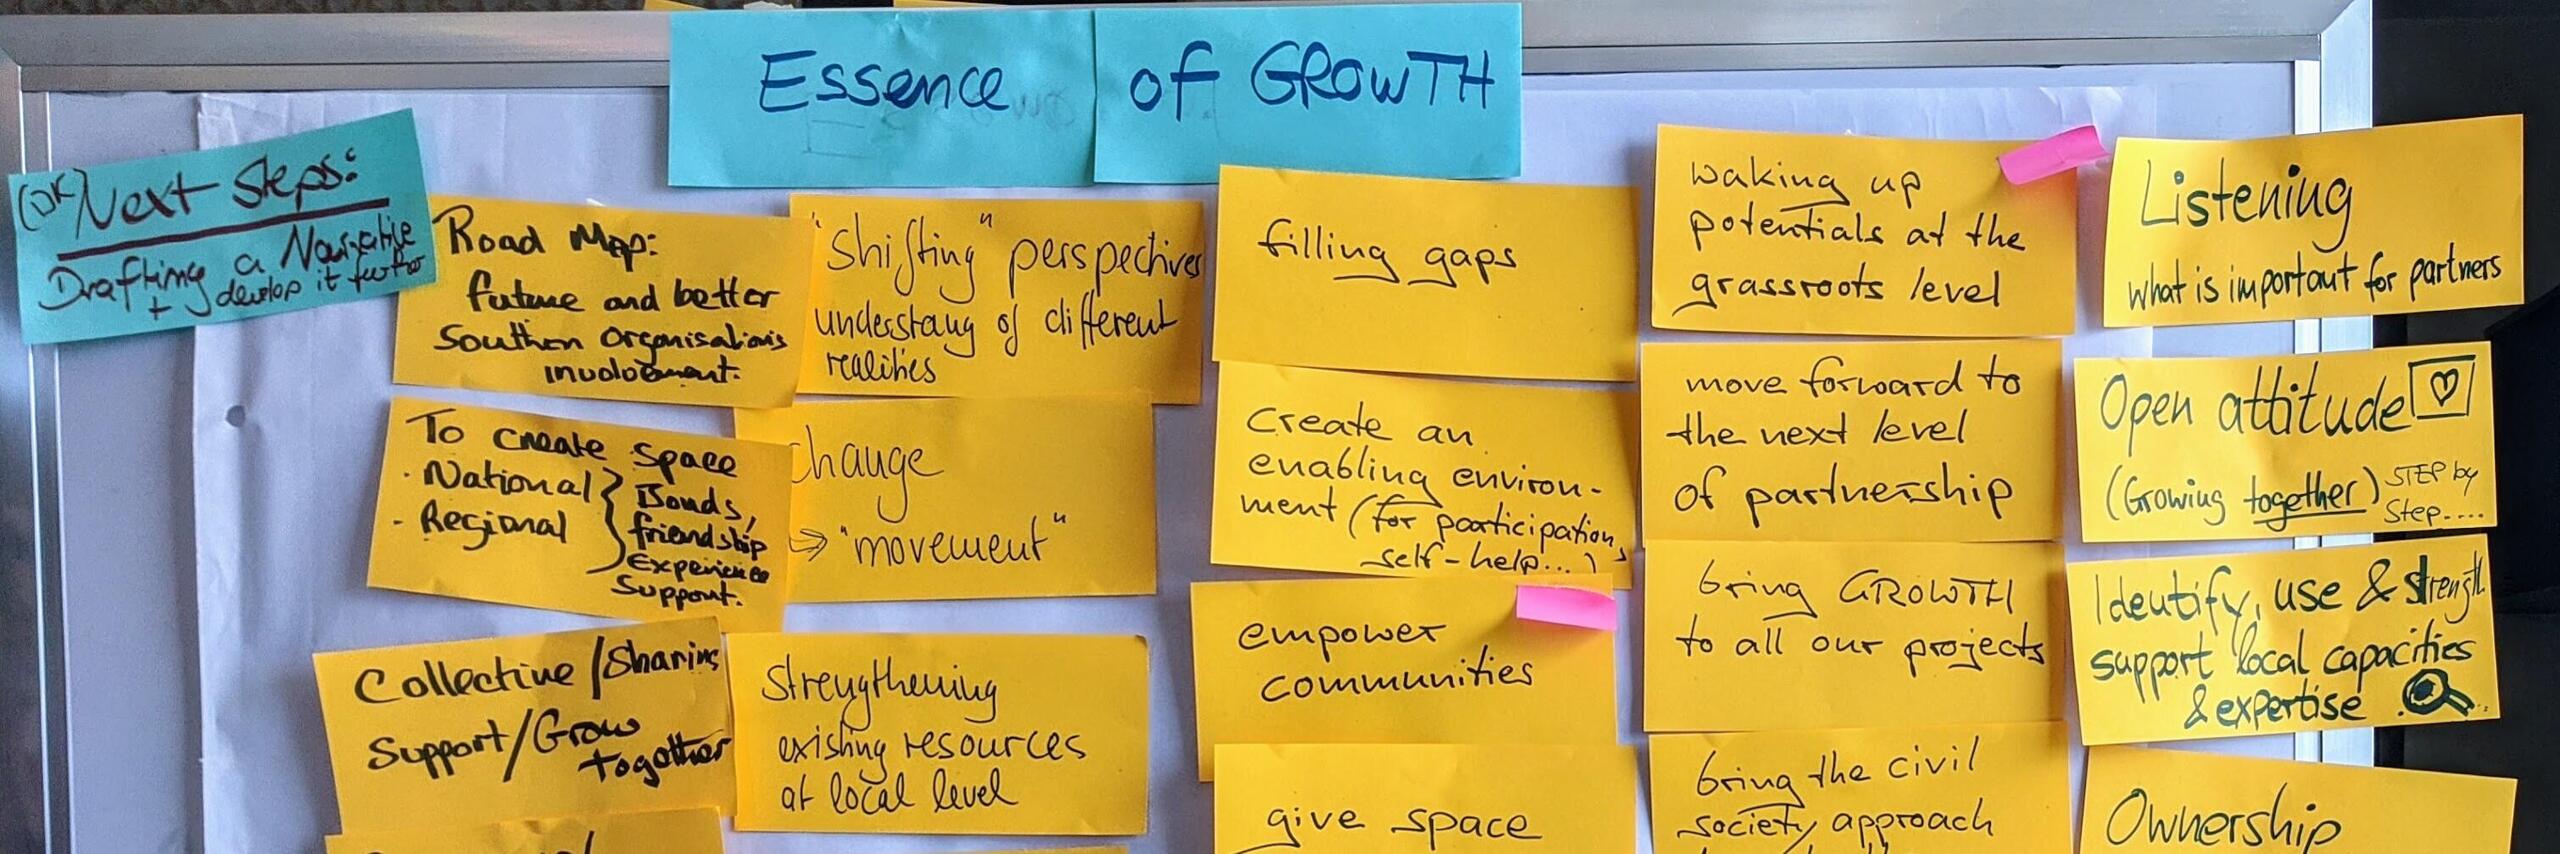 Essence of GROWTH
(OK) Next Steps:
Drafting a Narrative
+ develop it further
Road Map:
future and better
Southern Organisations
involvement.
To create space
· National
- Regional
Bonds,
friendship
Experiences
Support.
Collective/Sharing
Support/Grow
together
"Shifting" perspectives
understang of different
realities
change
"movement"
Strengthening
existing resources
at local level
filling gaps
Create an
enabling environ-
ment (for participation,
self-help...)
empower
communities
give space
waking up
potentials at the
grassroots level
move forward to
the next level
of partnership
bring GROWTH
to all our projects
bring the civil
society approach
Listening
what is important for partners
Open attitude
(Growing together) STEP by
Step....
Identify, use & strength
support local capacities
& expertise
Ownership